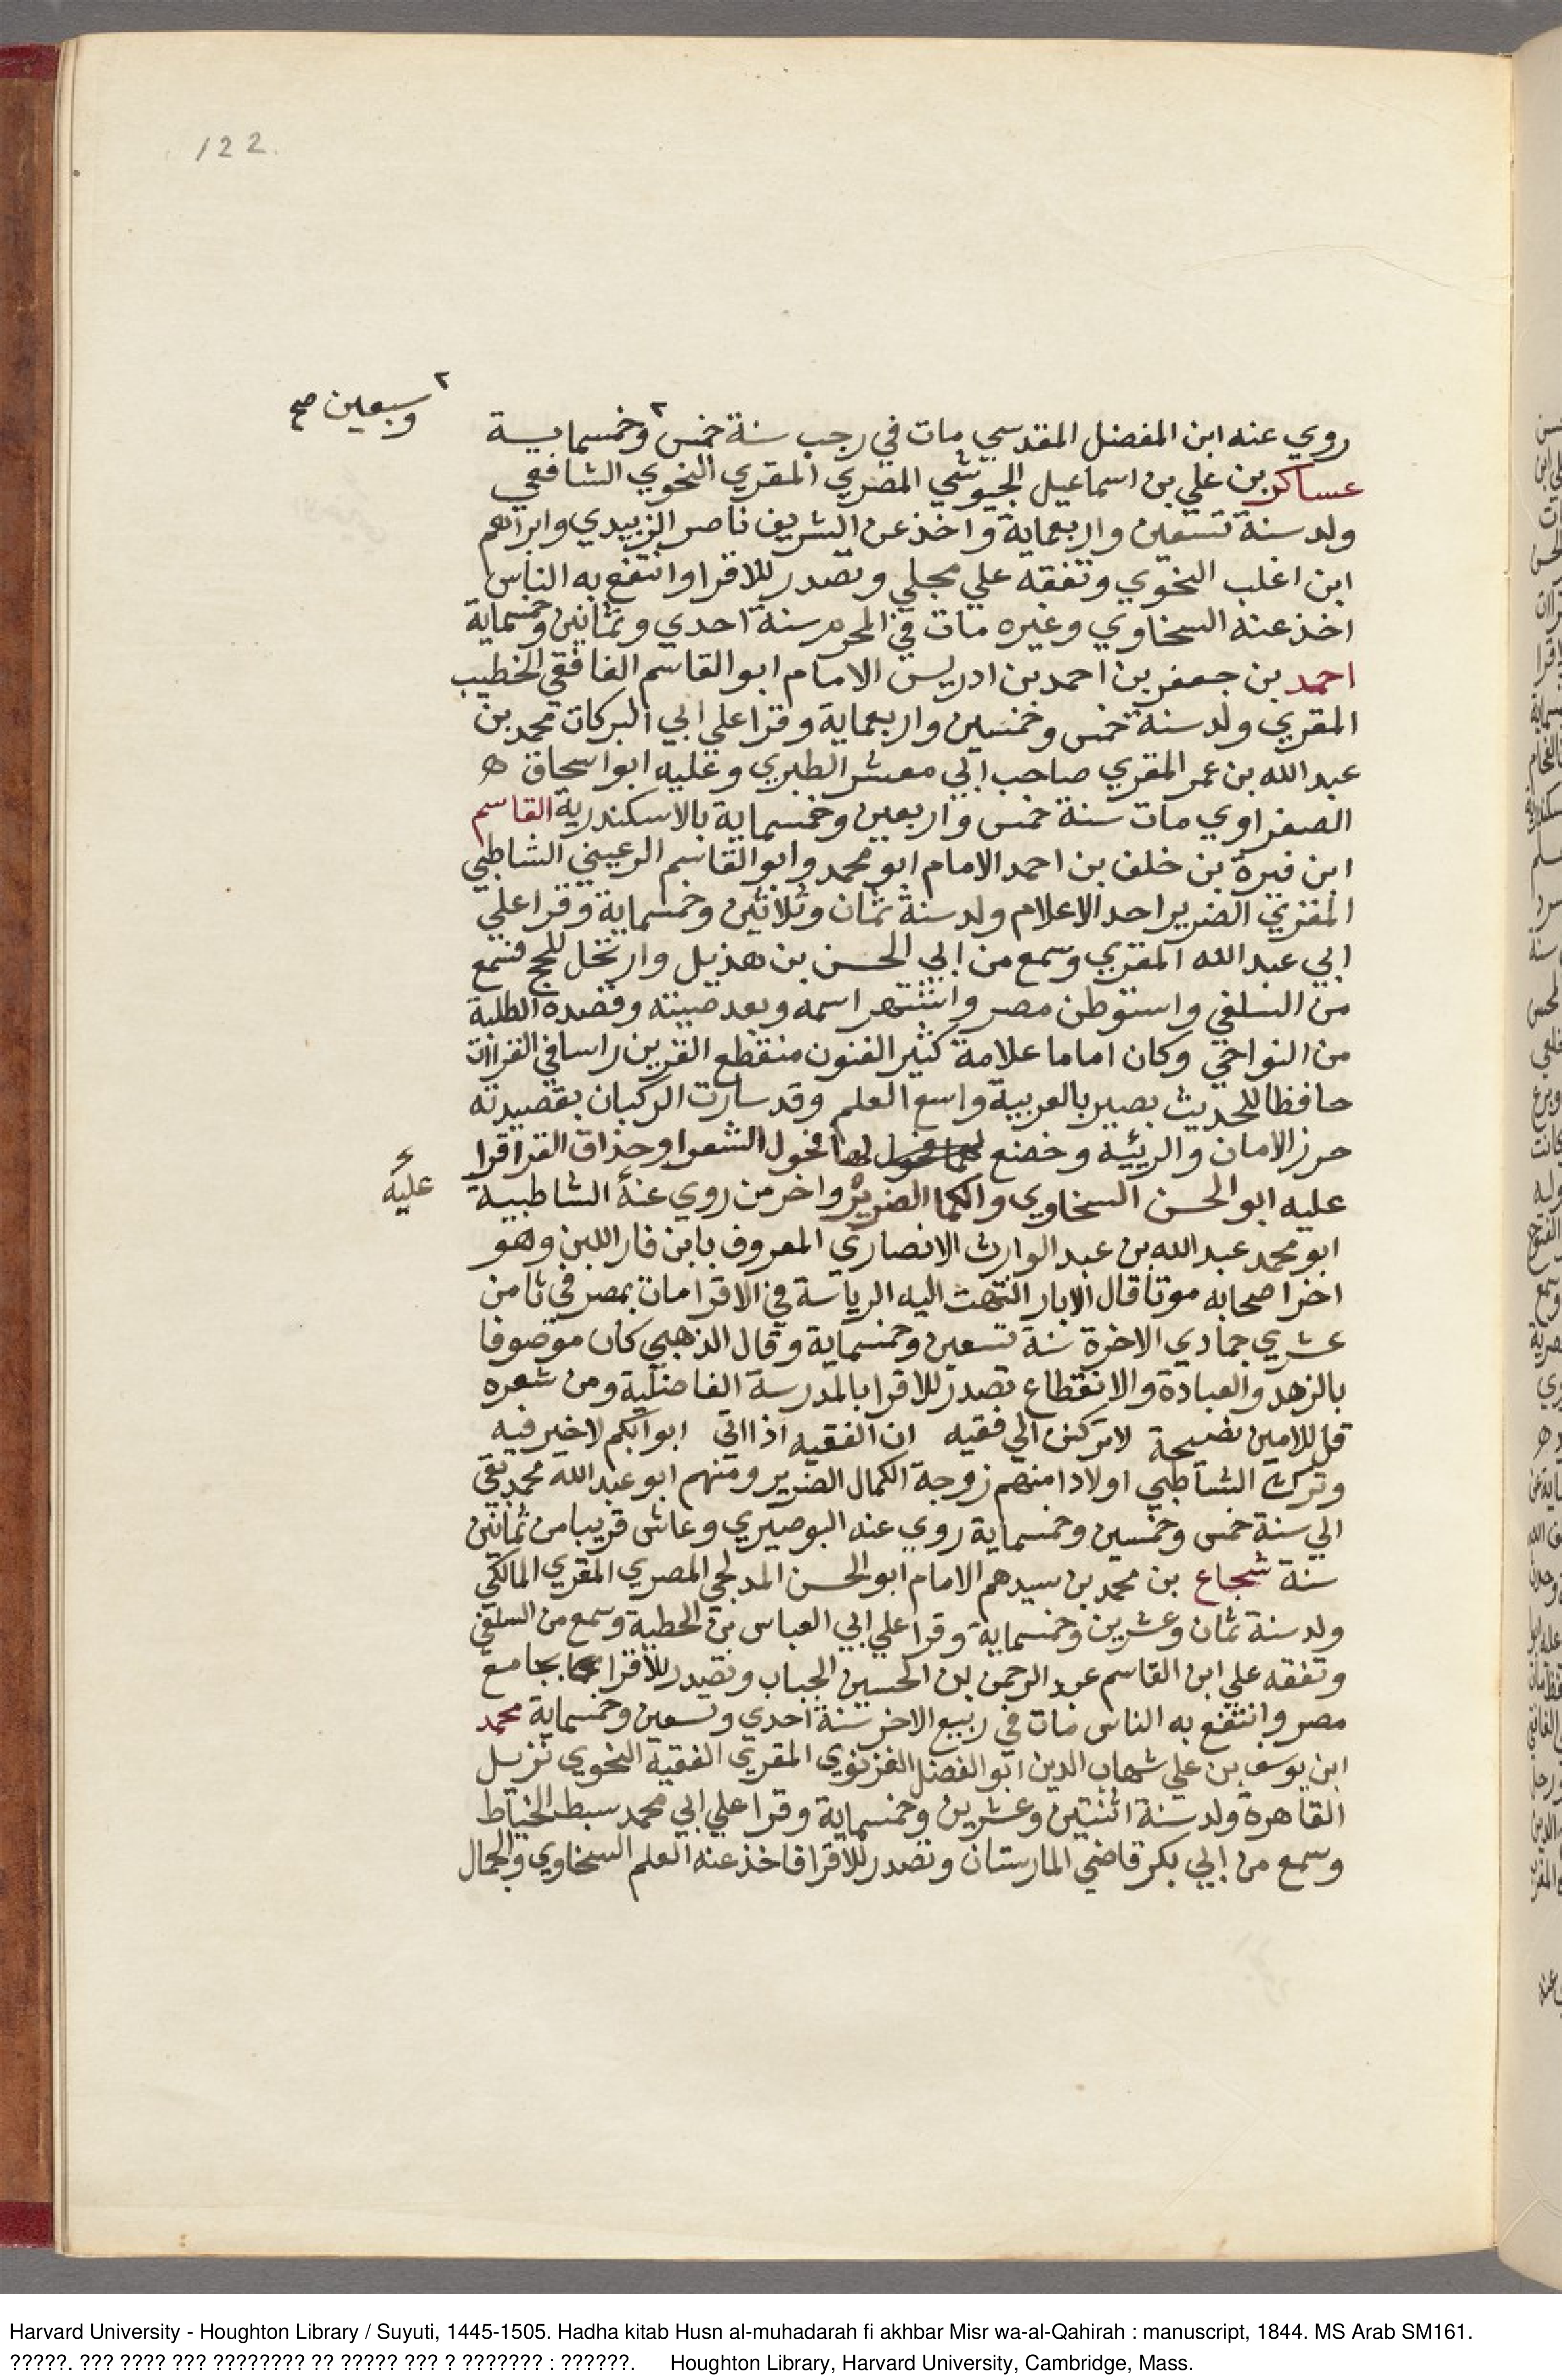 122.
وسبعين صح
روي عنه ابن المفضل المقدسي مات في رجب سنة خمس وخمسماية
عساكر بن علي بن اسماعيل الجيوشي المصري المقري النحوي الشافعي
ولد سنة تسعين واربعماية واخذ عن الشريف ناصر الزبيدي وابراهم
ابن اغلب النحوي وتفقه علي مجلي وتصدر للاقرا وانتفع به الناس
اخذ عنه السخاوي وغيره مات في المحرم سنة احدي وثمانين وخمسماية
احمد بن جعفر بن احمد بن ادريس الامام ابو القاسم الغافقي الخطيب
المقري ولد سنة خمس وخمسين واربعماية وقرا علي ابي البركات محمد بن
عبد الله بن عمر المقري صاحب ابي معشر الطبري وعليه ابو اسحاق ه
الصفراوي مات سنة خمس واربعين وخمسماية بالاسكندرية القاسم
ابن فيرة بن خلف بن احمد الامام ابو محمد وابو القاسم الرعيني الشاطبي
المقري الضرير احد الاعلام ولد سنة ثمان وثلاثين وخمسماية وقرا علي
ابي عبد الله المقري وسمع من ابي الحسن بن هذيل وارتحل للحج فسمع
من السلفي واستوطن مصر واشتهر اسمه وبعد صيته وقصده الطلبة
من النواحي وكان اماما علامة كثير الفنون منقطع القرين راسا في القراات
حافظا للحديث بصير بالعربية واسع العلم وقد سارت الركبان بقصيدته
حرز الامان والريئيه وخضع لها فحول الشعرا وحذاق القرا قرا
عليه ابو الحسن السخاوي والكما الضرير واخر من روي عنه الشاطبية
عليه
ابو محمد عبد الله بن عبد الوارث الانصاري المعروف بابن فار اللبن وهو
اخر اصحابه موتا قال الابار انتهت اليه الرياسة في الاقرا مات بمصر في ثامن
عشري جمادي الاخرة سنة تسعين وخمسماية وقال الذهبي كان موصوفا
بالزهد والعبادة والانقطاع تصدر للاقرا بالمدرسة الفاضلية ومن شعره
قل للامين نصيحة لا تركنن الي فقيه ان الفقيه اذا اتي ابوابكم لا خير فيه
وترك الشاطبي اولادا منهم زوجة الكمال الضرير ومنهم ابو عبد الله محمد بقي
الي سنة خمس وخمسين وخمسماية روي عنه البوصيري وعاش قريبا من ثمانين
سنة شجاع بن محمد بن سيدهم الامام ابو الحسن المدلجي المصري المقري المالكي
ولد سنة ثمان وعشرين وخمسماية وقرا علي ابي العباس بن الحطية وسمع من السلفي
وتفقه علي ابن القاسم عبد الرحمن بن الحسين الجباب وتصدر للاقرا بجامع
مصر وانتفع به الناس مات في ربيع الاخر سنة احدي وتسعين وخمسماية محمد
ابن يوسف بن علي شهاب الدين ابو الفضل الغزنوي المقري الفقيه النحوي نزيل
القاهرة ولد سنة اثنتين وعشرين وخمسماية وقرا علي ابي محمد سبط الخياط
وسمع من ابي بكر قاضي المارستان وتصدر للاقرا فاخذ عنه العلم السخاوي والجمال
Harvard University - Houghton Library / Suyuti, 1445-1505. Hadha kitab Husn al-muhadarah fi akhbar Misr wa-al-Qahirah : manuscript, 1844. MS Arab SM161.
?????. ??? ???? ??? ???????? ?? ????? ??? ? ??????? : ??????. Houghton Library, Harvard University, Cambridge, Mass.